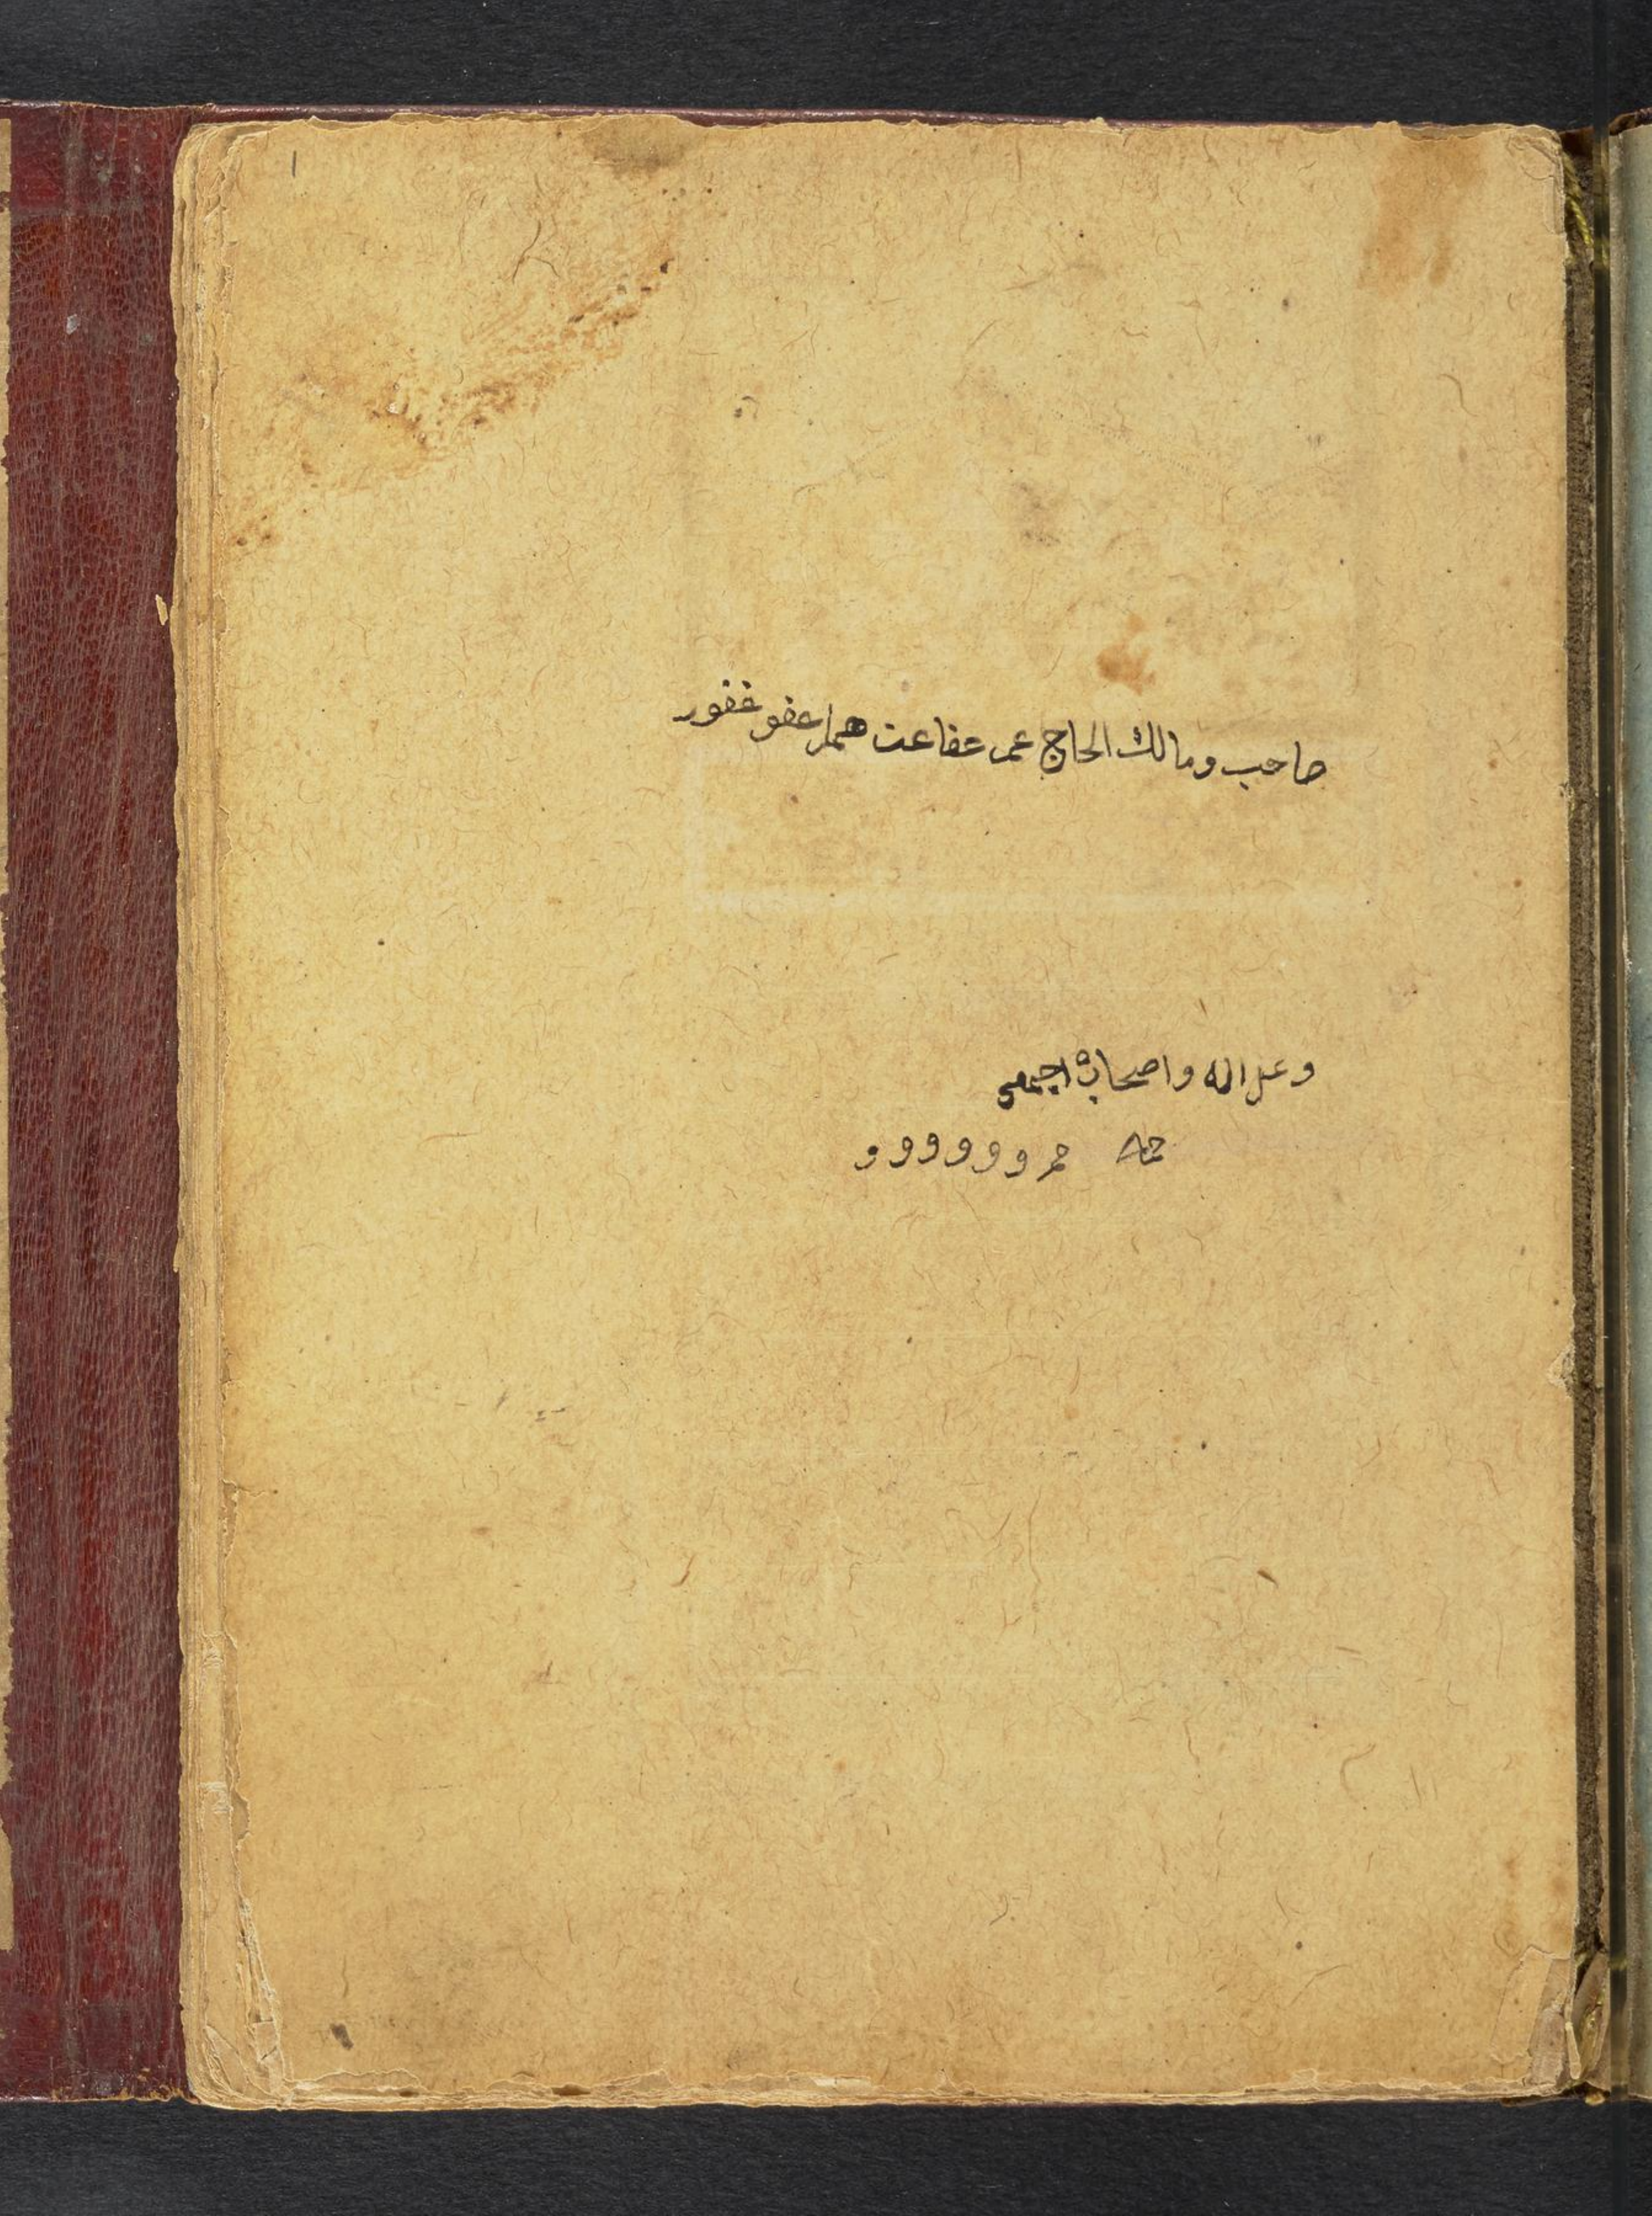 صاحب ومالك الحاج عمر عفا عنهما عفو غفور
وعلى اله واصحابه اجمعى
و و و و و و